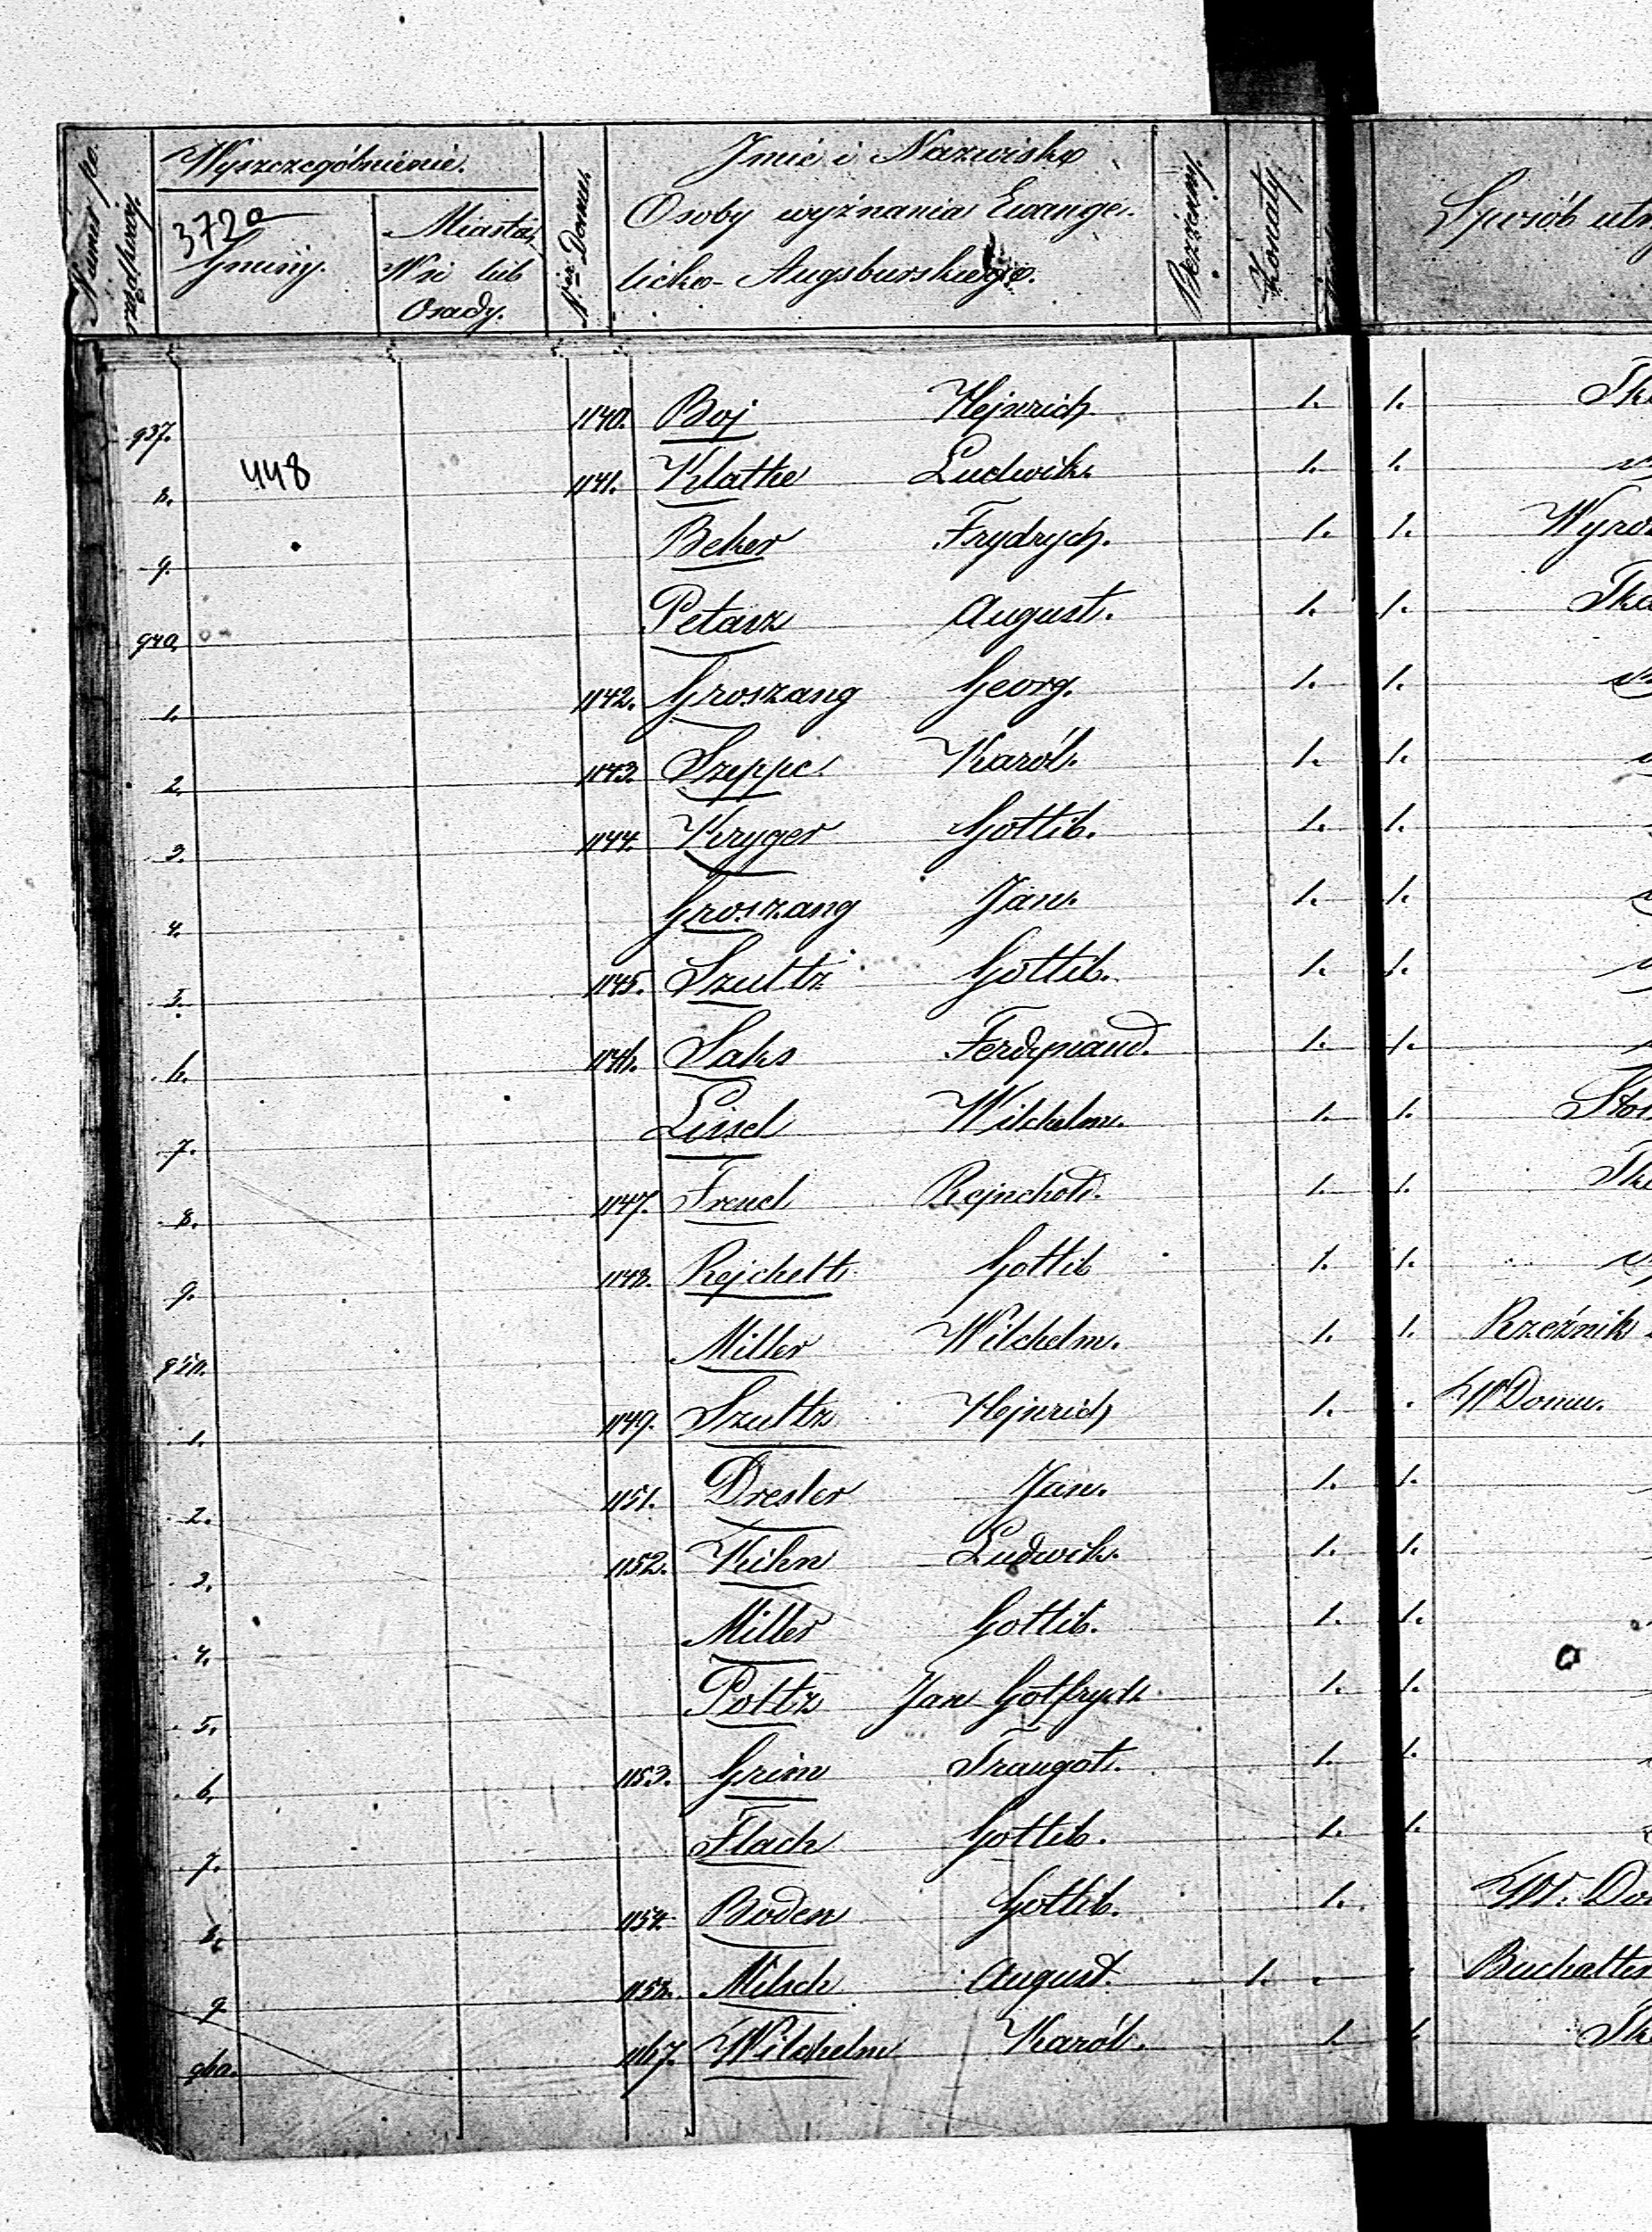 Numer po-
rządkowy.
Wyszczególnienie.
3720
Gminy.
Miasta,
Wsi lub
Osady.
Nr Domu.
Imie i Nazwisko
Osoby wyznania Ewange-
licko-Augsburskiego.
Bezżenny.
Żonaty.
Sposób utrz
448
937. 1140. Boj Hejnrich 1. 1. Tk
8. 1141. Klatke Ludwik. 1. 1.
9. Beker Frydrych. 1. 1. Wyro
940. Petasz August. 1. 1. Tka
1. 1142. Groszang Georg. 1. 1.
2. 1143. Szeppe. Karól. 1. 1.
3. 1144. Kryger Gottlib. 1. 1.
4. Groszang Jan. 1. 1.
5. 1145. Szultz Gottlib. 1. 1.
6. 1146. Saks Ferdynand. 1. 1.
7. Lissel Wilchelm. 1. 1. Sto
8. 1147. Freud Rejnchold. 1. 1. Tk
9. 1148. Rejchelt Gottlib 1. 1.
950. Miller Wilchelm. 1. 1. Rzeźnik
1. 1149. Szultz Hejnrich 1. W Domu.
2. 1151. Dresler Jan. 1. 1.
3. 1152. Kihn Ludwik. 1. 1.
4. Miller Gottlib. 1. 1.
5. Poltz Jan Gotfryd. 1. 1.
6. 1153. Grim Traugot. 1. 1.
7. Flach Gottlib. 1. 1.
8. 1154. Boden Gottlib. 1. W. Do
9. 1158. Milsch August. 1. Buchalter
960. 1167. Wilchelm Karól. 1. 1. Tk